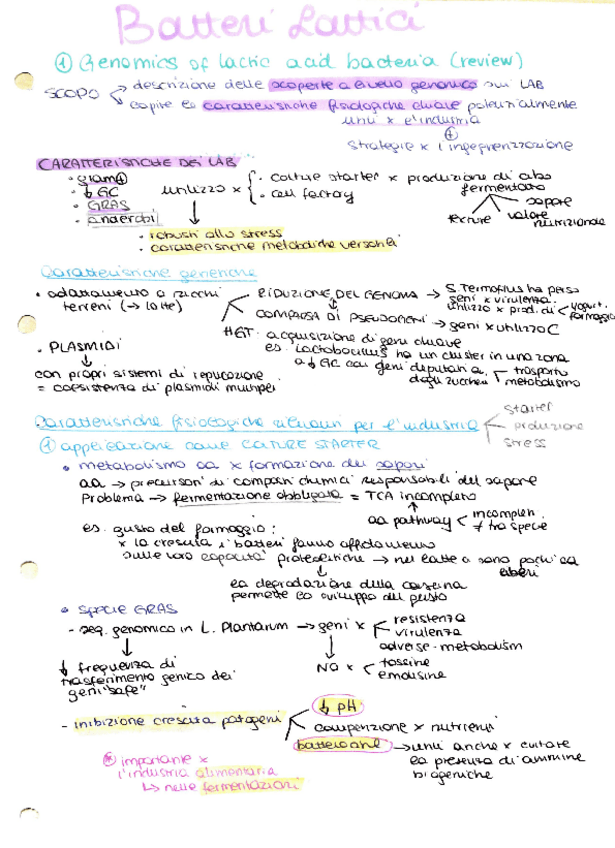 Batteri Lattici
① Genomics of lactic acid bacteria (review)
SCOPO descrizione delle scoperte a livello genomico sui LAB
capire le caratteristiche fisiologiche chiave potenzialmente
utili x l'industria
+
strategie x l'ingegnerizzazione
CARATTERISTICHE DEI LAB
• gram +
• ↓ GC
• GRAS
• anaerobi
utilizzo x • colture starter x produzione di cibo
fermentato
• cell factory
texture valore nutrizionale sapore
• robusti allo stress
• caratteristiche metaboliche versatili
Caratteristiche genetiche
• adattamento a ricchi
terreni (→ latte)
RIDUZIONE DEL GENOMA → S. Termofilus ha perso
geni x virulenza.
utilizzo x prod. di yogurt formaggio
COMPARSA DI PSEUDOGENI → geni x utilizzo C
HGT: acquisizione di geni chiave
es. lactobacillus ha un cluster in una zona
a ↓ GC con geni deputati a trasporto
degli zuccheri metabolismo
• PLASMIDI
↓
con propri sistemi di replicazione
= coesistenza di plasmidi multipli
Caratteristiche fisiologiche rilevanti per l'industria
starter
produzione
stress
① applicazione come COLTURE STARTER
• metabolismo aa x formazione dei sapori
aa → precursori di composti chimici responsabili del sapore
Problema → fermentazione obbligata = TCA incompleto
↑
aa pathway < incompleti
≠ tra specie
es. gusto del formaggio:
x la crescita i batteri fanno affidamento
sulle loro capacità proteolitiche → nel latte ci sono pochi aa
liberi
↓
la degradazione della caseina
permette lo sviluppo del gusto
• Specie GRAS
- seq. genomica in L. Plantarum → geni x resistenza
virulenza
adverse-metabolism
↓
↓ frequenza di
trasferimento genico dei
geni "safe"
↓
NO x < tossine
emolisine
- inibizione crescita patogeni
↓ pH
competizione x nutrienti
batteriocine → utili anche x evitare
la presenza di ammine
biogeniche
importante x
l'industria alimentaria
↳ nelle fermentazioni